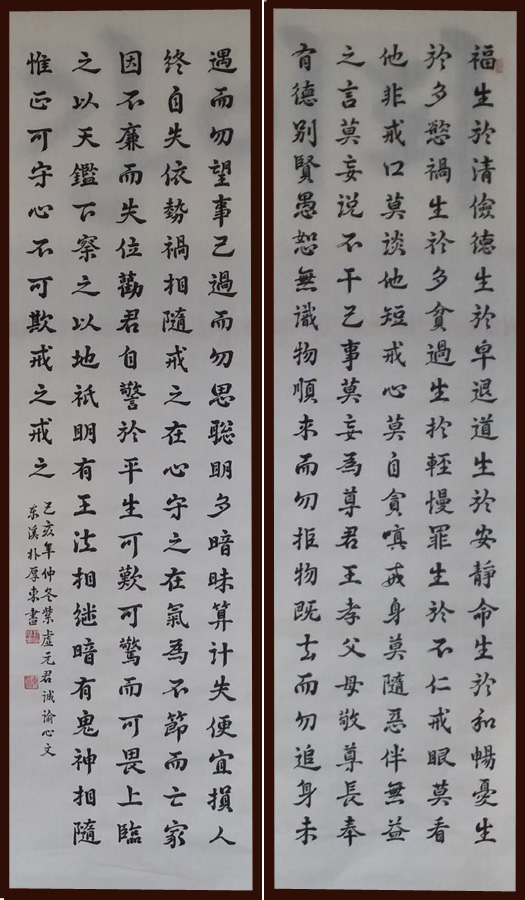 福生於清儉德生於卑退道生於安靜命生於和暢憂生
於多慾禍生於多貪過生於輕慢罪生於不仁戒眼莫看
他非戒口莫談他短戒心莫自貪嗔戒身莫隨惡伴無益
之言莫妄说不干己事莫妄為尊君王孝父母敬尊長奉
有德別賢愚恕無識物順来而勿拒物既去而勿追身未
遇而勿望事已過而勿思聪明多暗昧算計失便宜損人
終自失依勢禍相隨戒之在心守之在氣為不節而亡家
因不廉而失位勸君自警於平生可歎可驚而可畏上臨
之以天鑑下察之以地祇明有王法相继暗有鬼神相隨
惟正可守心不可欺戒之戒之
己亥年仲冬紫虛元君诚谕心文
东溪朴厚東書